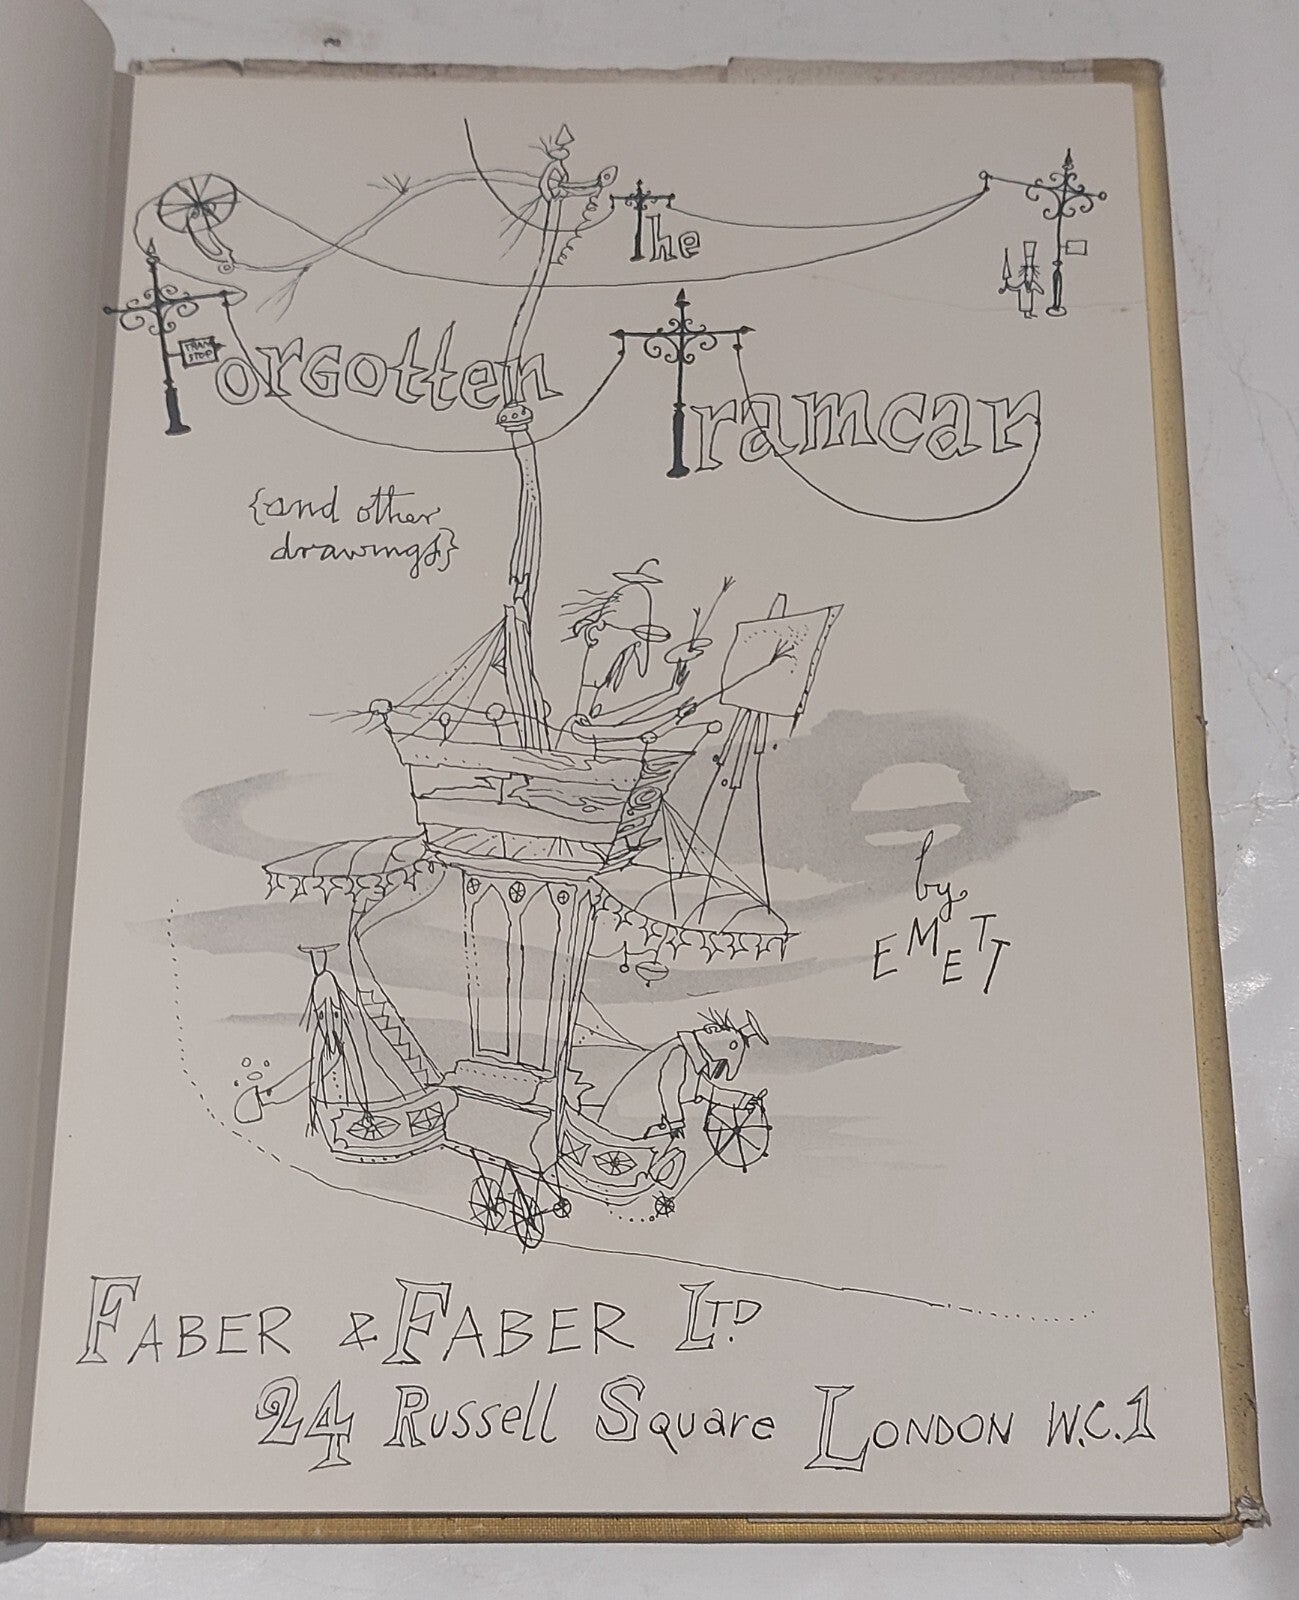 The
TRAM
STOP
Forgotten
Tramcar
{and other
drawings}
by
EMETT
FABER & FABER LTD.
24 Russell Square LONDON W.C.1